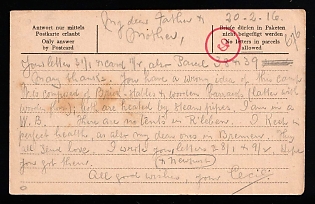 Antwort nur mittels
Postkarte erlaubt
Only answer
by Postcard
My dear Father &
Mother,
20-2-16.
Briefe dürfen in Paketen
nicht beigefügt werden
No letters in parcels
allowed
Your letter 31/1 & card 9/2, also Parcel 38 & 39
Many thanks. You have a wrong idea of this camp
It is composed of Brick-Stables & wooden Barracks (latter with
wooden floor); both are heated by steam pipes. I am in a
W.B. There are no tents in R'leben. I Keep in
perfect health, as also my dear ones in Bremen. They
all send love. I wrote you letters 28/1 & 9/2. Hope
you got them.
All good wishes, your Cecil.